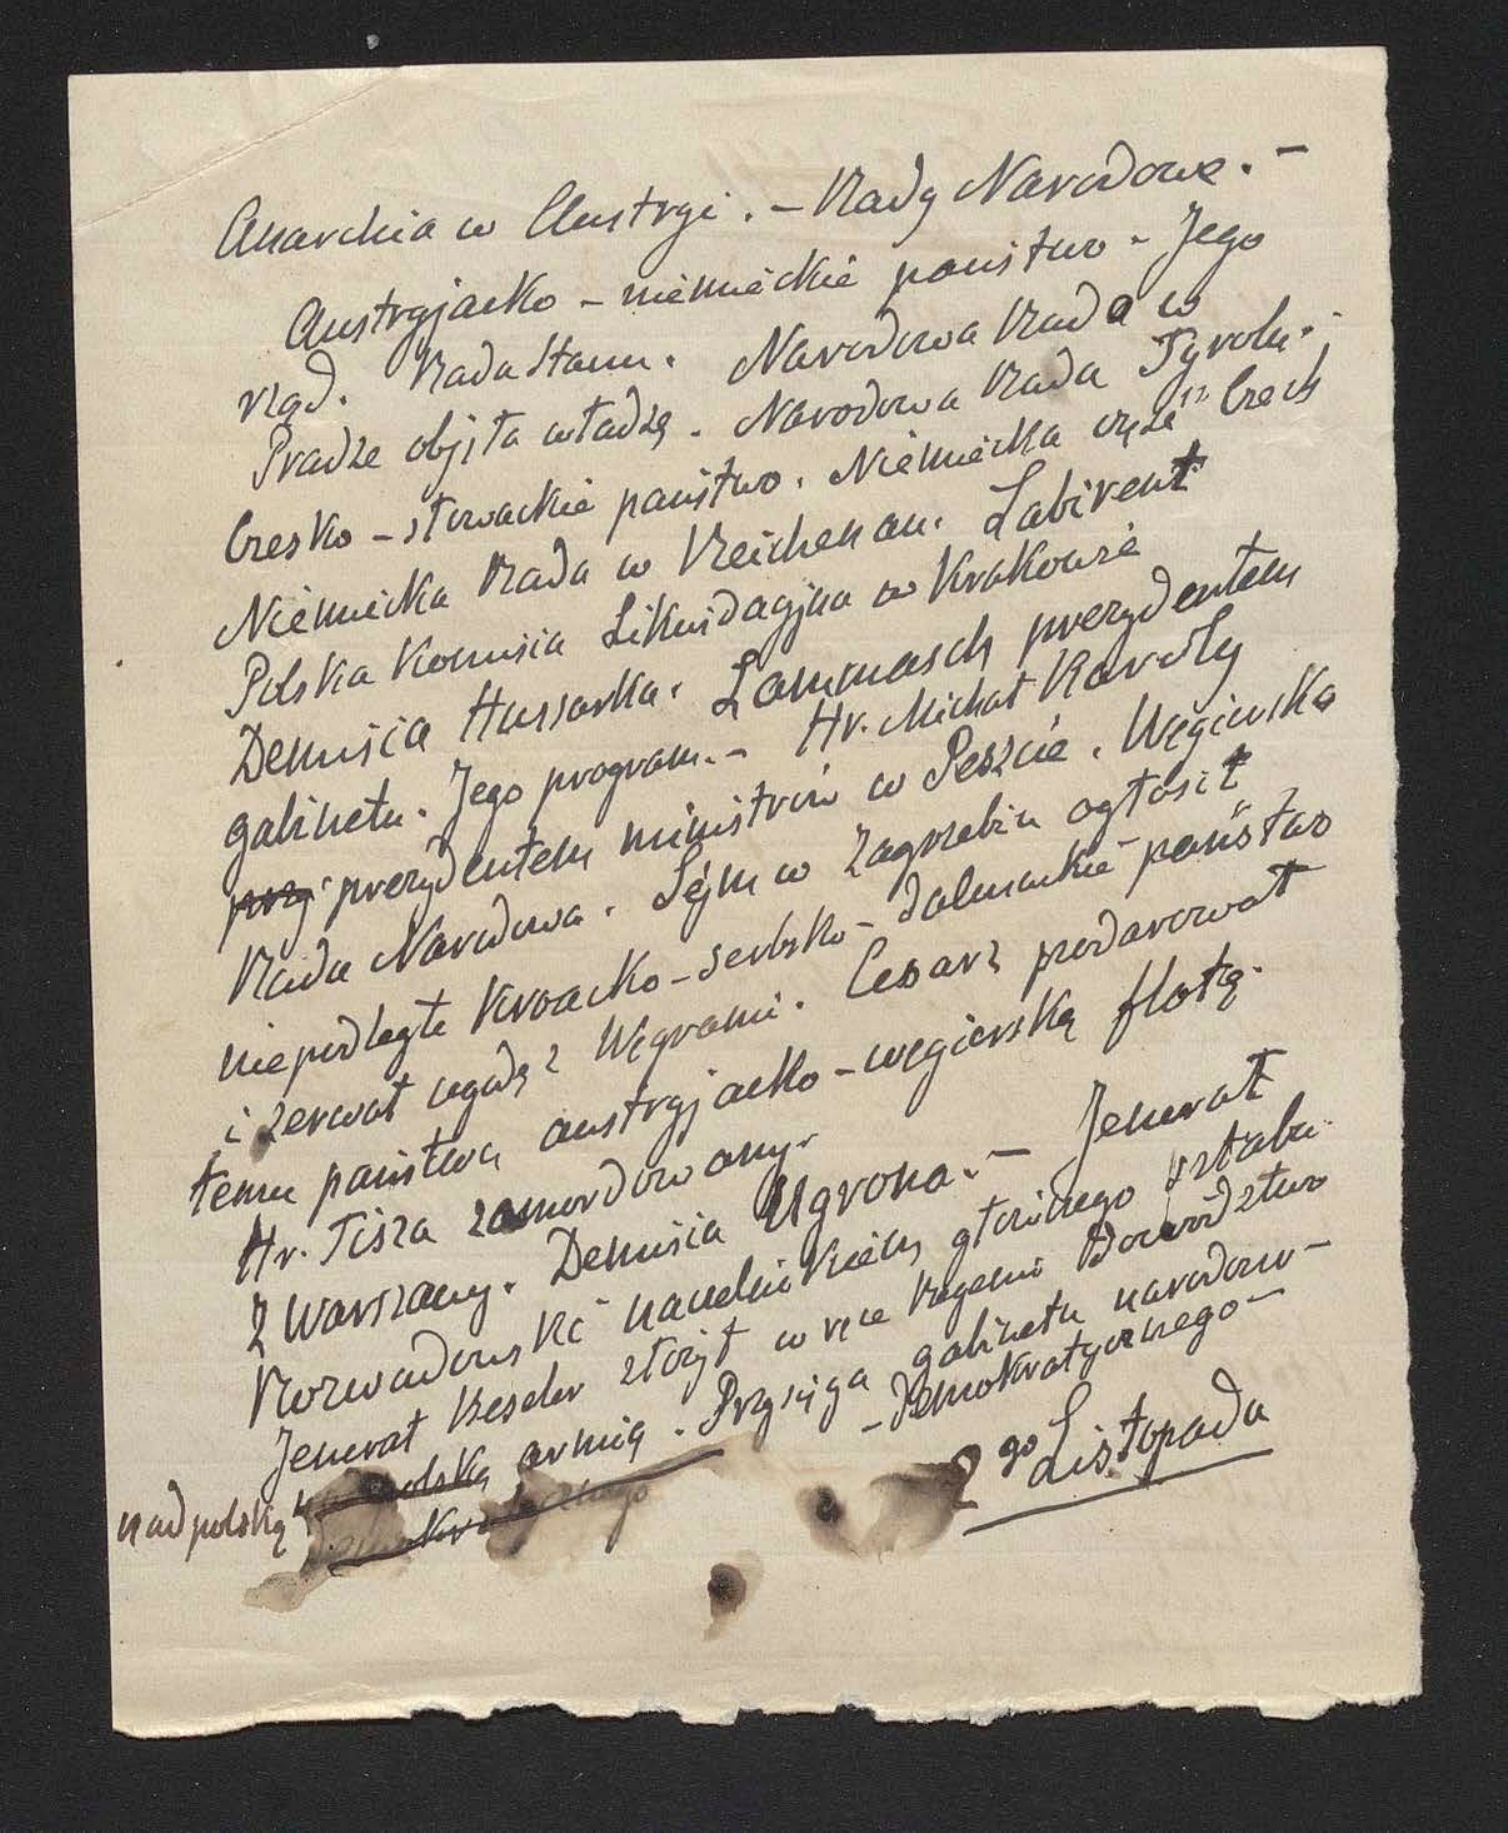 Anarchia w Austryi. – Rady Narodowe. –
Austryjacko – niemieckie państwo – Jego
rząd. Rada Stanu. Narodowa Rada w
Pradze objęła władzę. Narodowa Rada Tyrolu. –
Czesko – słowackie państwo. Niemiecka część Czech
Niemiecka Rada w Reichenau. Labirent
Polska Komisia Likwidacyjna w Krakowie
Demisia Hussarka. Lammasch prezydentem
gabinetu. Jego program. – Hr. Michał Karoly
przy prezydentem ministrów w Peszcie. Węgierska
Rada Narodowa. Sejm w Zagrzebiu ogłosił
niepodległe kroacko – serbsko – dalmackie państwo
i zerwał ugodę z Węgrami. Cesarz podarował
temu państwu austryjacko – węgierską flotę.
Hr. Tisza zamordowany.
Z Warszawy. Demisia Ugrona. – Jenerał
Rozwadowski naczelnikiem głównego sztabu.
Jenerał Beseler złożył w ręce Regencii Dowództwo
nad polską polską armią. Przysięga gabinetu narodowo –
– demokratycznego –
demokratycznego
2go Listopada